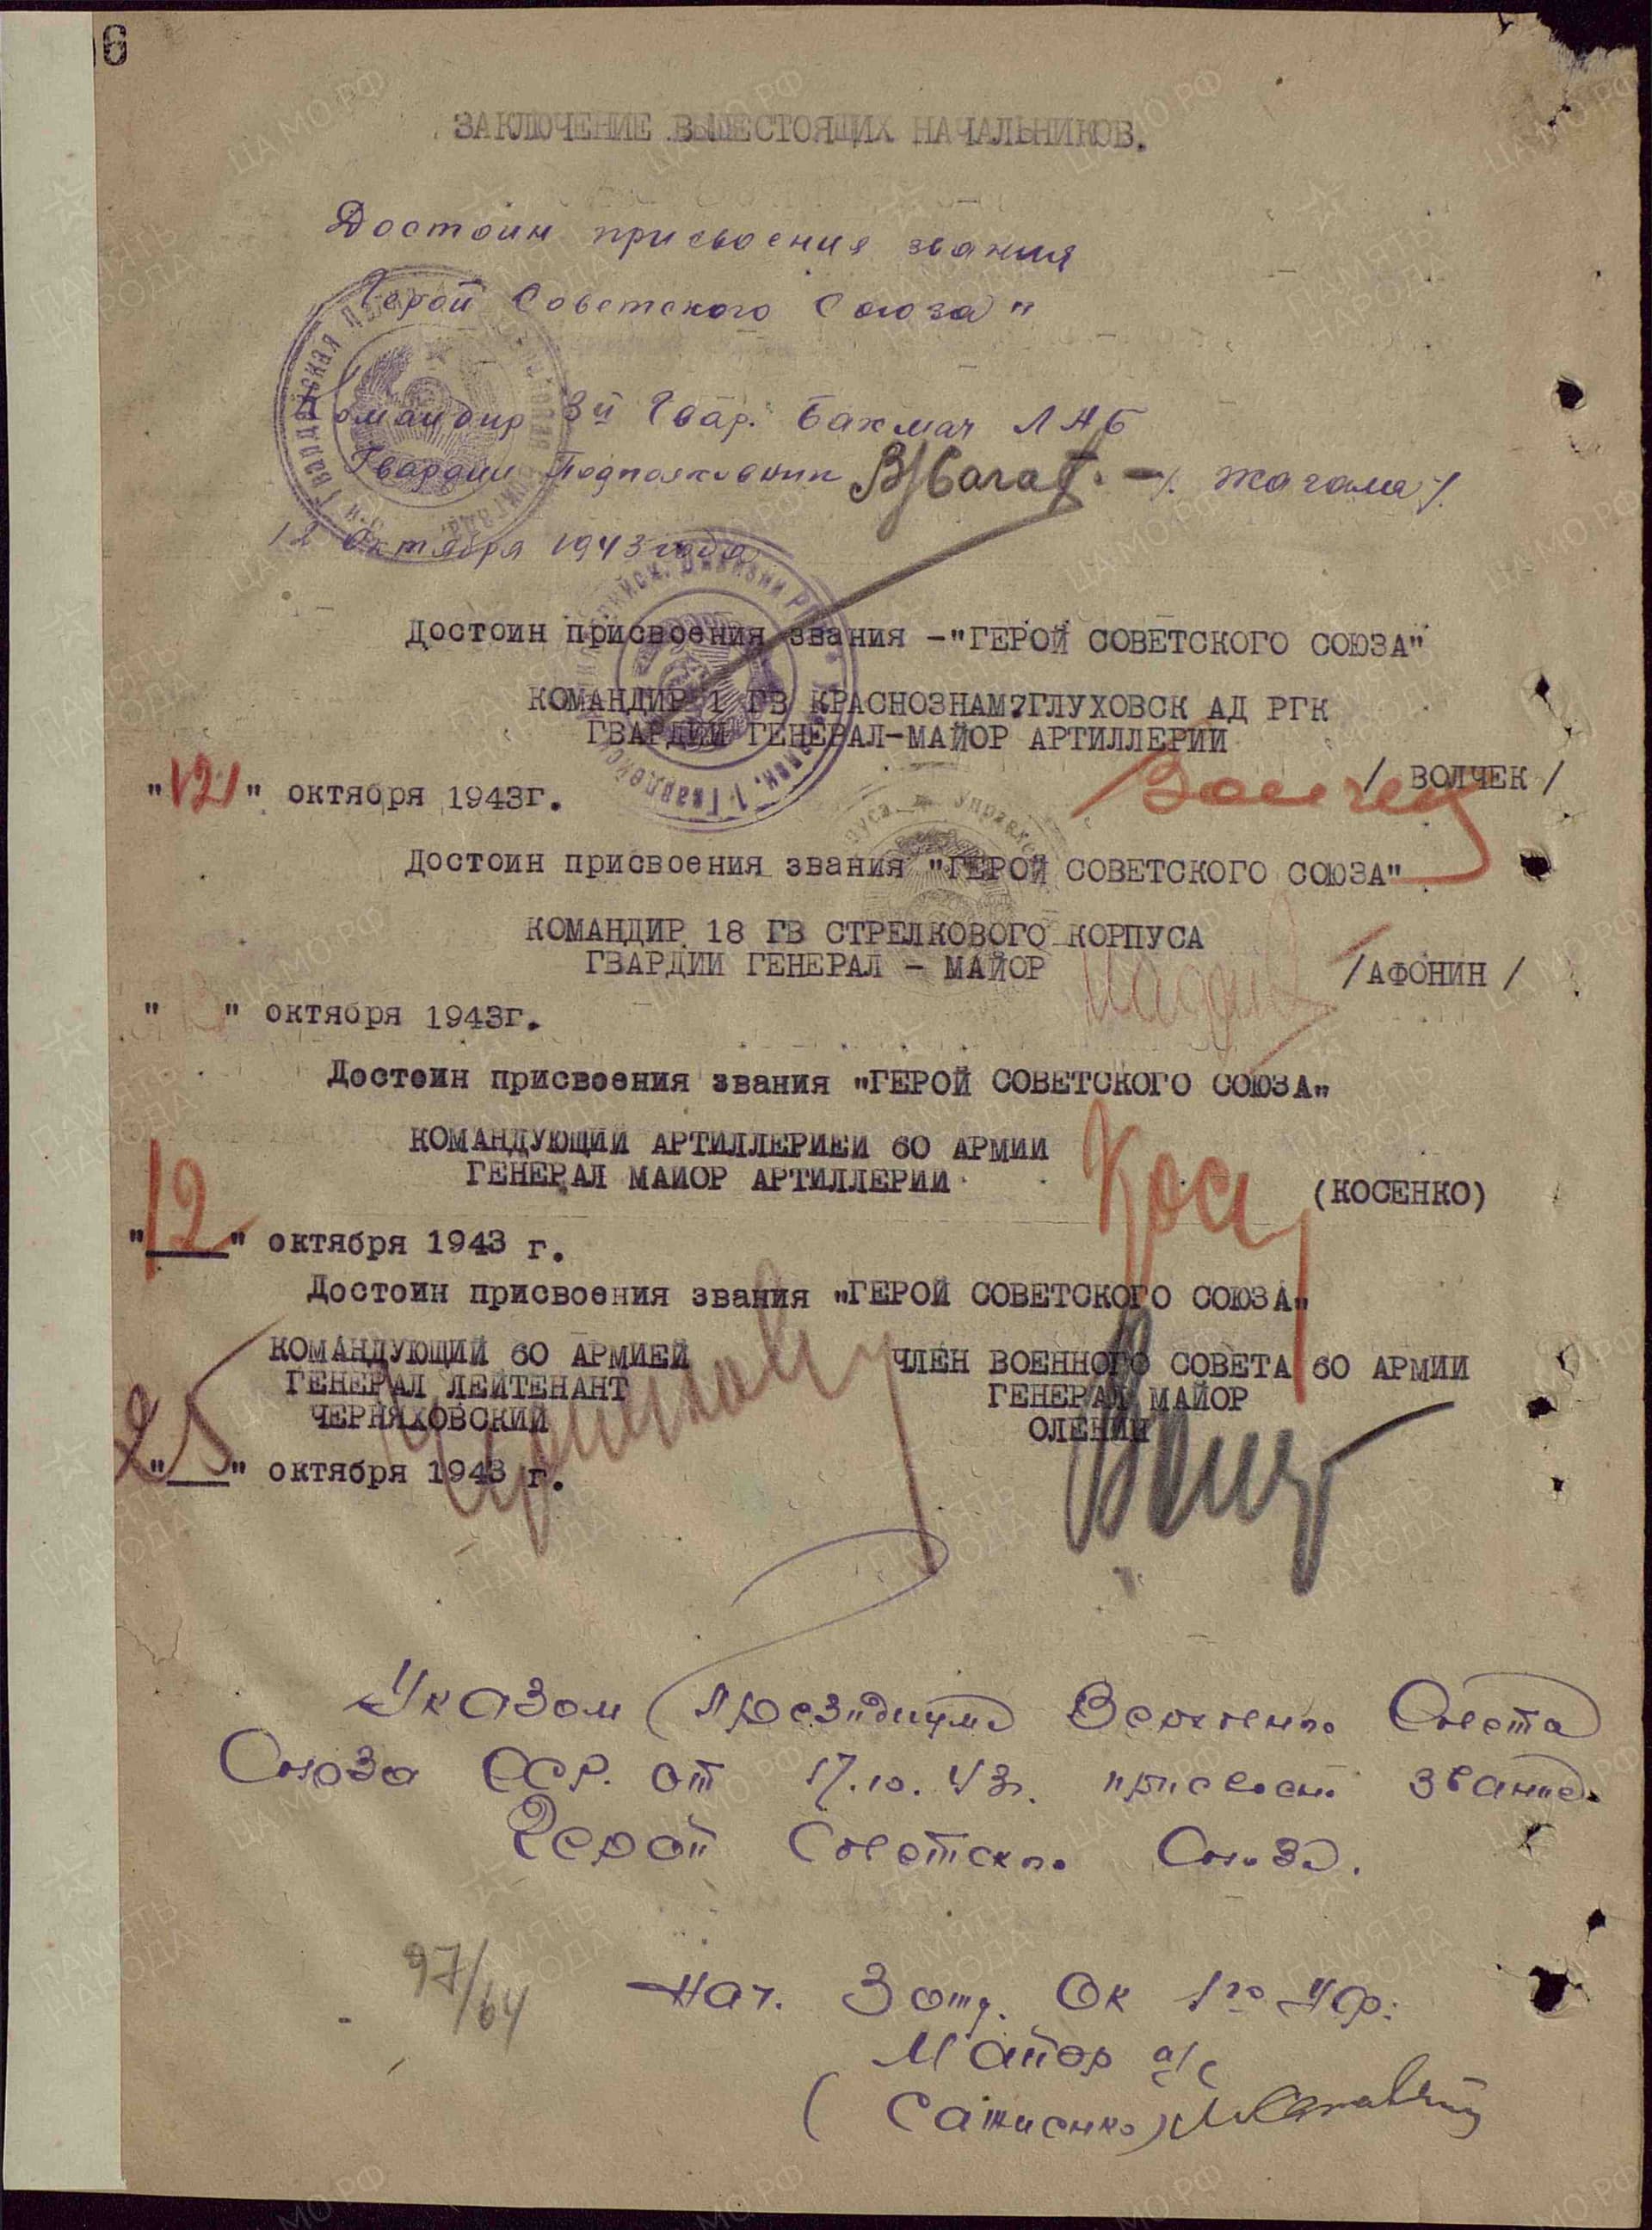 6
ЗАКЛЮЧЕНИЕ ВЫШЕСТОЯЩИХ НАЧАЛЬНИКОВ.
Достоин присвоения звания
Герой Советского Союза"
Командир 3й Гвар. Бахмач ЛАБ
Гвардии Подполковник /. Жагала /.
12 Октября 1943 года
Достоин присвоения звания -"ГЕРОЙ СОВЕТСКОГО СОЮЗА"
КОМАНДИР 1 ГВ КРАСНОЗНАМ?ГЛУХОВСК АД РГК
ГВАРДИИ ГЕНЕРАЛ-МАЙОР АРТИЛЛЕРИИ
/ ВОЛЧЕК /
"12" октября 1943г.
Достоин присвоения звания "ГЕРОЙ СОВЕТСКОГО СОЮЗА"
КОМАНДИР 18 ГВ СТРЕЛКОВОГО КОРПУСА
ГВАРДИИ ГЕНЕРАЛ - МАЙОР
/АФОНИН /
" " октября 1943г.
Достоин присвоения звания "ГЕРОЙ СОВЕТСКОГО СОЮЗА"
КОМАНДУЮЩИЙ АРТИЛЛЕРИЕЙ 60 АРМИИ
ГЕНЕРАЛ МАЙОР АРТИЛЛЕРИИ
(КОСЕНКО)
"12" октября 1943 г.
Достоин присвоения звания "ГЕРОЙ СОВЕТСКОГО СОЮЗА"
КОМАНДУЮЩИЙ 60 АРМИЕЙ
ГЕНЕРАЛ ЛЕЙТЕНАНТ
ЧЕРНЯХОВСКИЙ
ЧЛЕН ВОЕННОГО СОВЕТА 60 АРМИИ
ГЕНЕРАЛ МАЙОР
ОЛЕНИН
"25" октября 1943 г.
Указом Президиума Верховного Совета
Союза ССР. от 17.10.43г. присвоено звание
Герой Советского Союза.
97/64
Нач. 3 отд. ОК 1го Упр.
Майор а/с